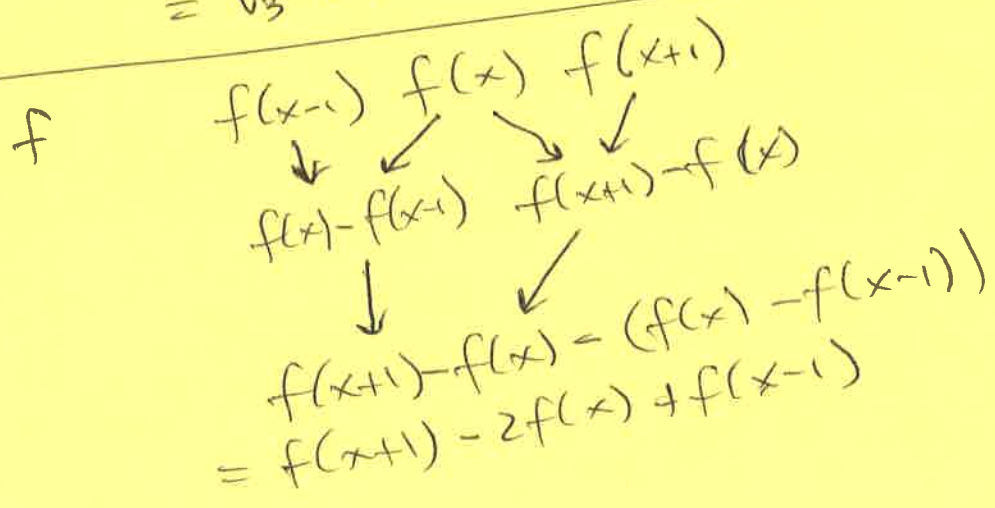 = √3
f f(x-1) f(x) f(x+1)
f(x)-f(x-1) f(x+1)-f(x)
f(x+1)-f(x)-(f(x)-f(x-1))
= f(x+1)-2f(x)+f(x-1)